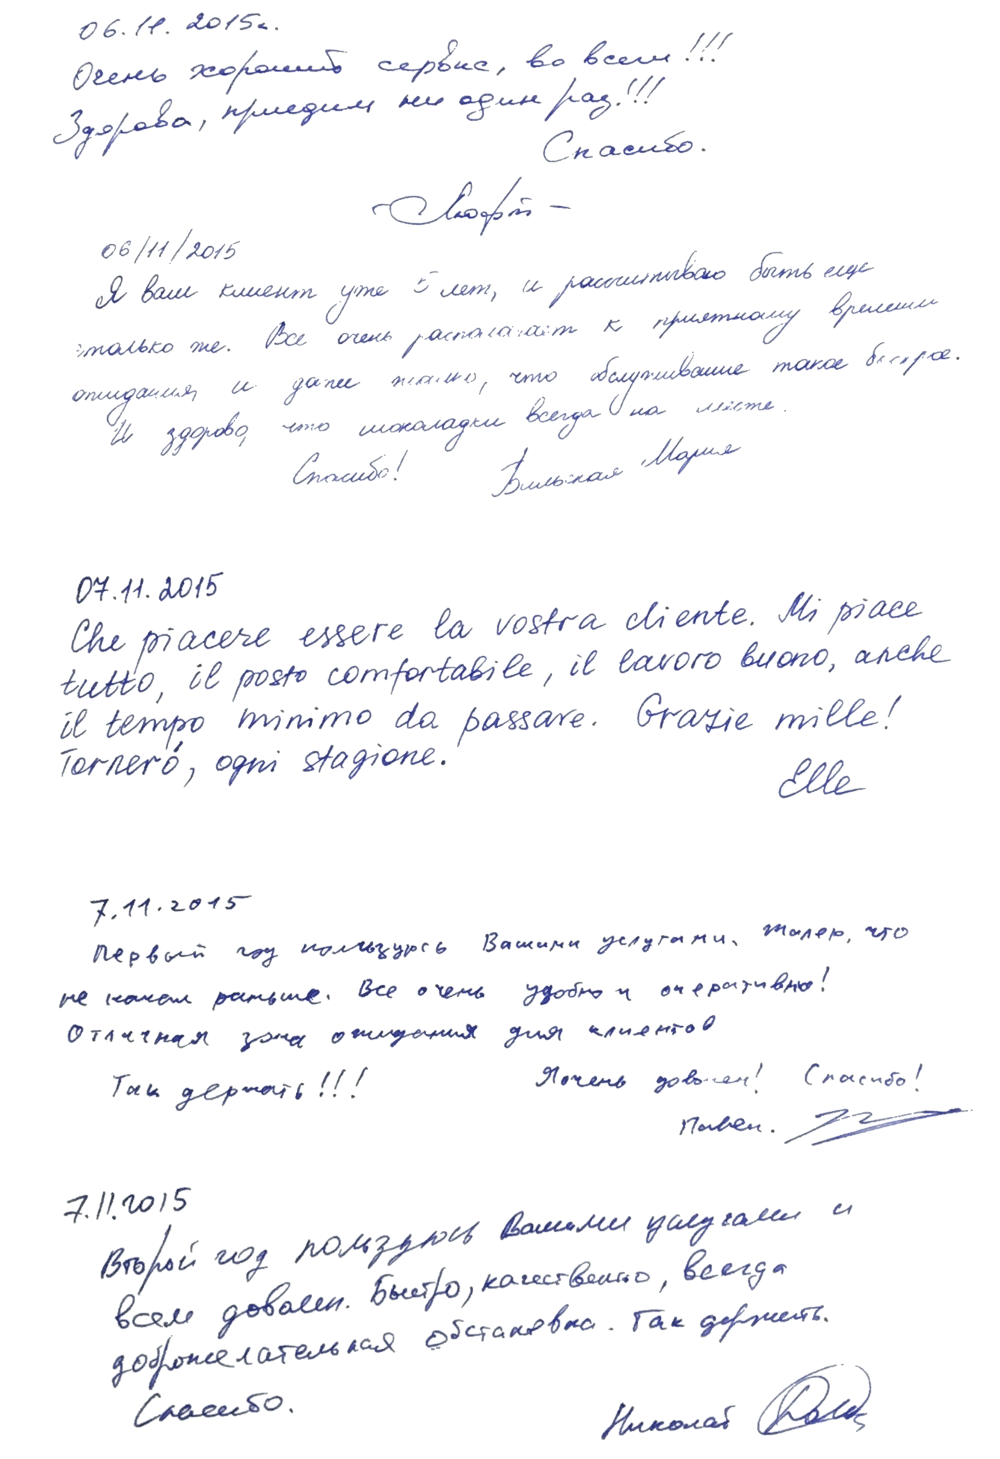 06.11.2015г.
Очень хороший сервис, во всем!!!
Здорова, приедим ни один раз!!!
Спасибо.
06/11/2015
Я ваш клиент уже 5 лет, и рассчитываю быть еще
столько же. Все очень располагает к приятному времени
ожидания, и даже жалко, что обслуживание такое быстрое.
И здорово, что шоколадки всегда на месте.
Спасибо! Бильская Мария
07.11.2015
Che piacere essere la vostra cliente. Mi piace
tutto, il posto comfortabile, il lavoro buono, anche
il tempo minimo da passare. Grazie mille!
Tornerò, ogni stagione.
Elle
7.11.2015
Первый год пользуюсь Вашими услугами. Жалею, что
не начал раньше. Все очень удобно и оперативно!
Отличная зона ожидания для клиентов
Так держать!!! Я очень доволен! Спасибо!
Павел.
7.11.2015
Второй год пользуюсь Вашими услугами и
всем доволен. Быстро, качественно, всегда
доброжелательная обстановка. Так держать.
Спасибо.
Николай